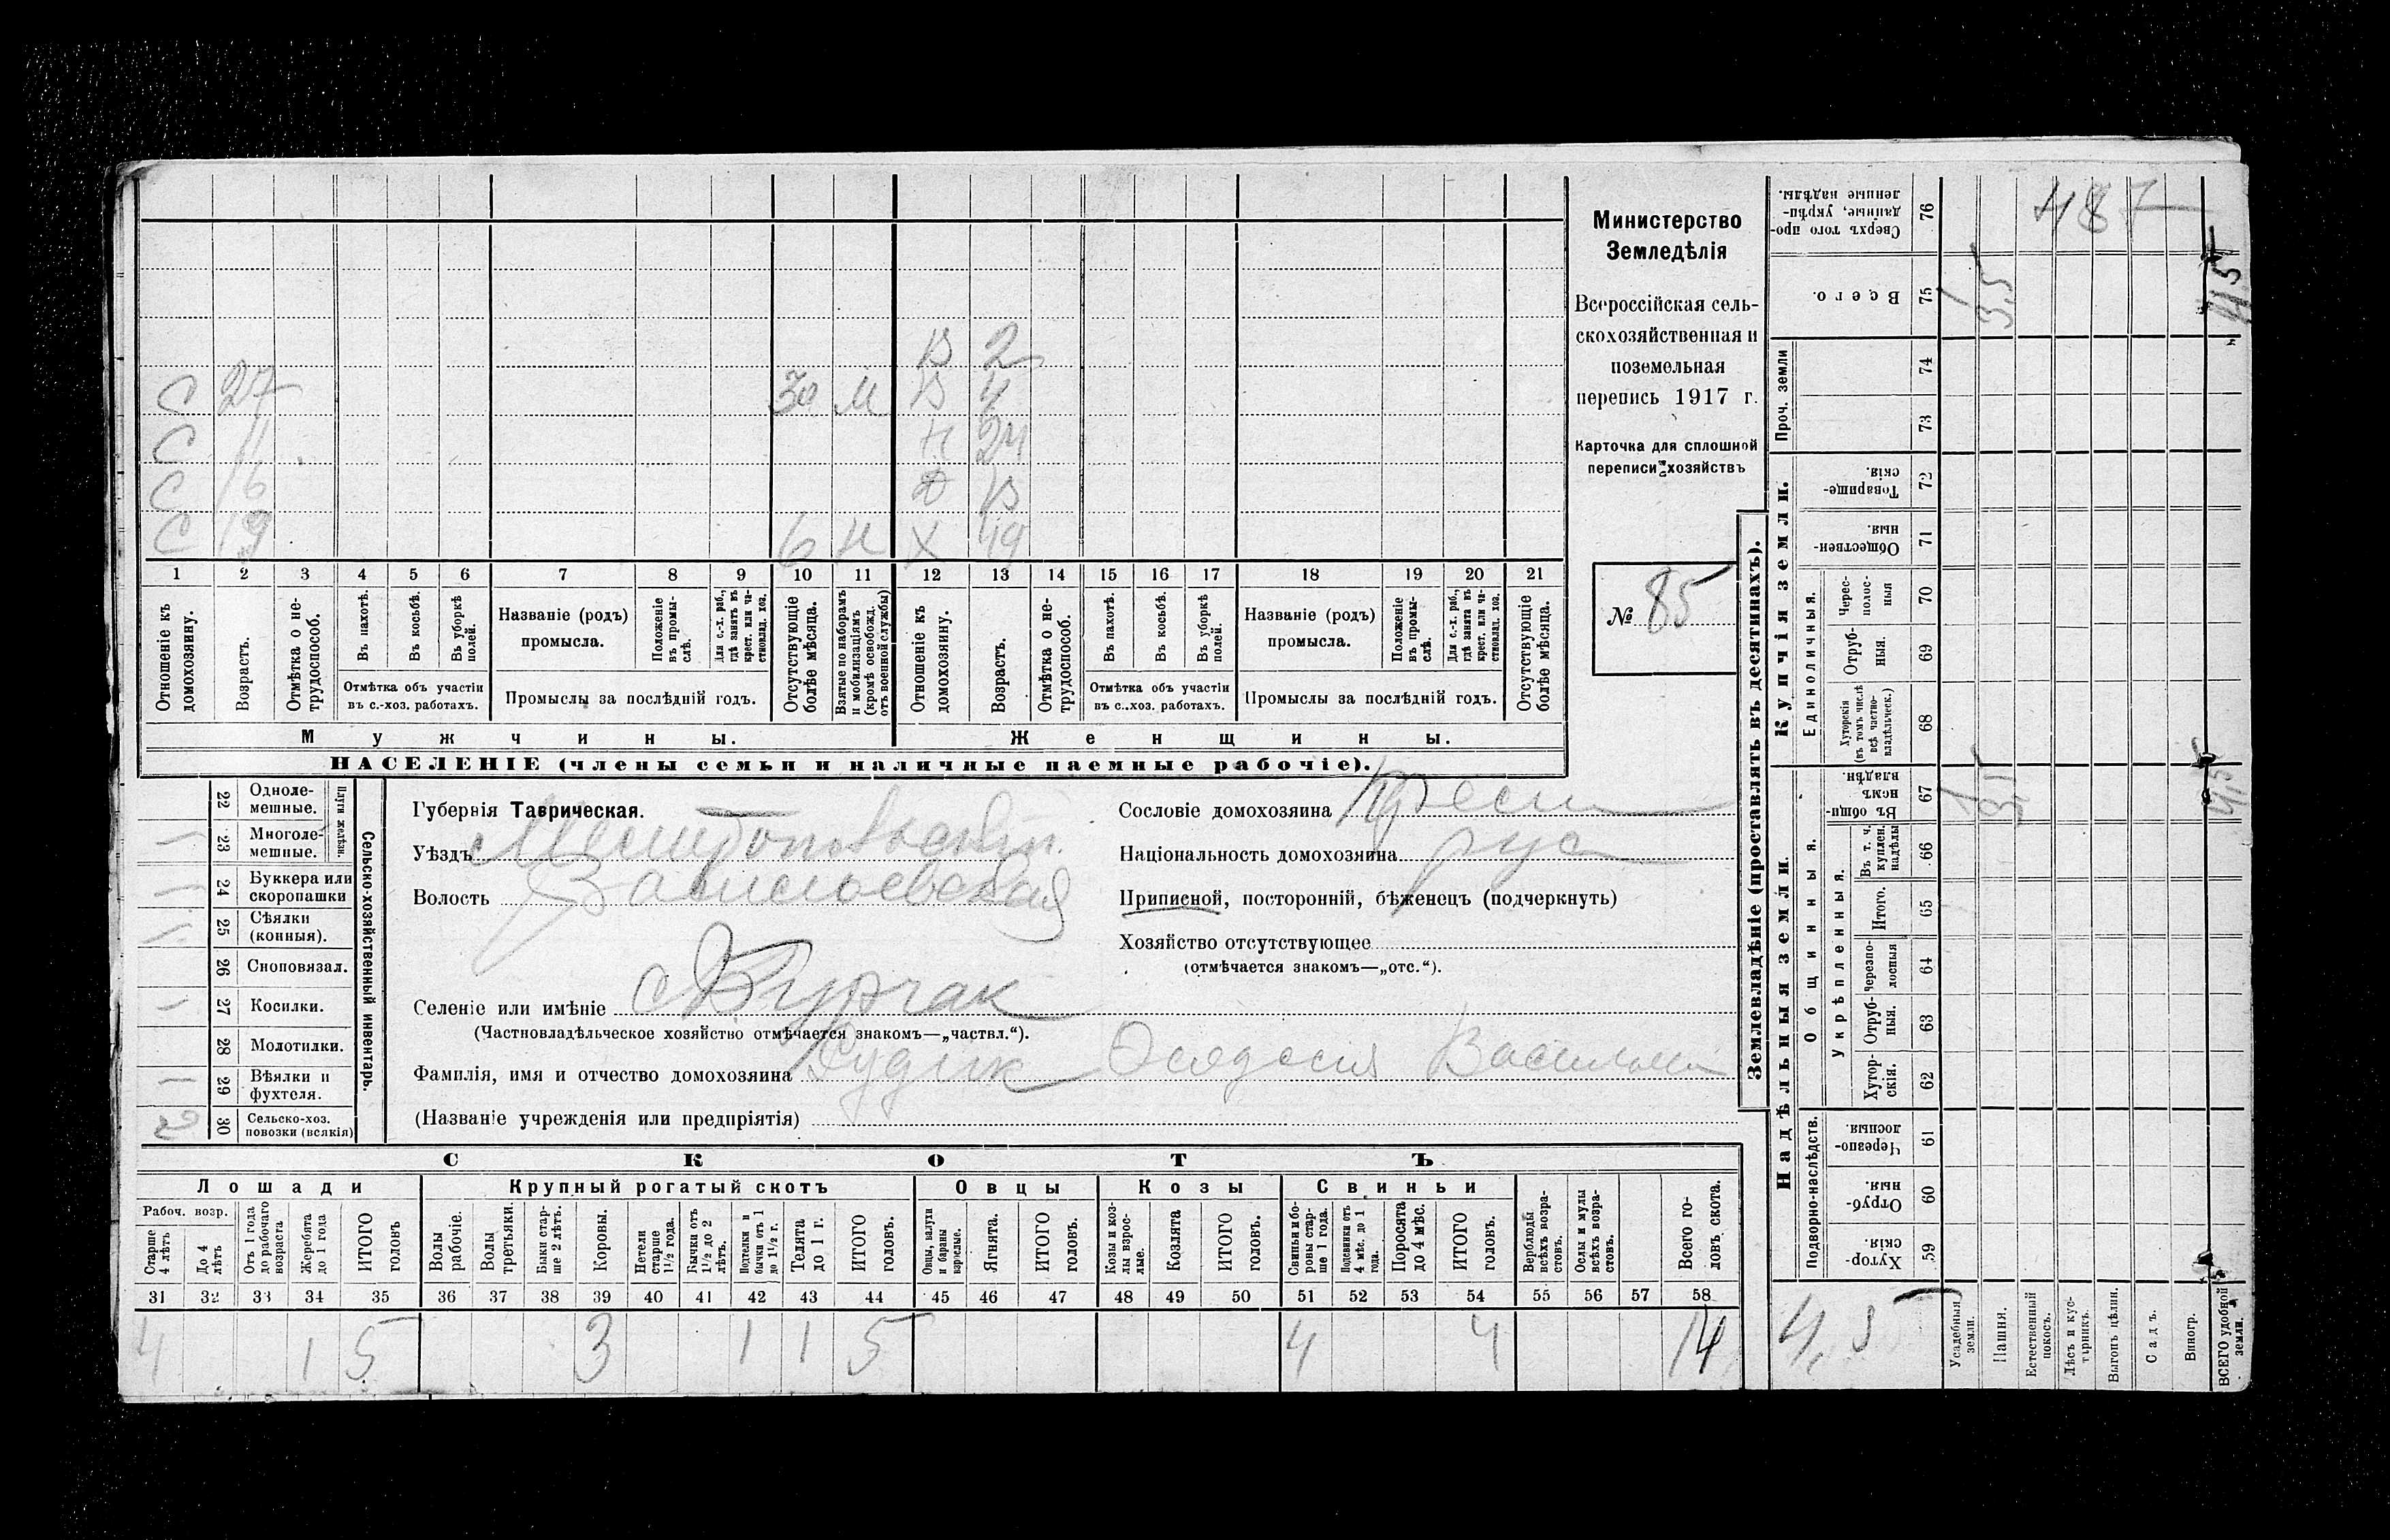 В 2
С 27 30 М В 4
С 11 Н 24
С 16 Д 13
С 19 6 Н Х 49
1 2 3 4 5 6 7 8 9 10 11 12 13 14 15 16 17 18 19 20 21
Отношеніе къ домохозяину.
Возрастъ.
Отмѣтка о нетрудоспособ.
Въ пахотѣ.
Въ косьбѣ.
Въ уборкѣ полей.
Отмѣтка объ участіи
въ с.-хоз. работахъ.
Названіе (родъ)
промысла.
Положеніе въ промыслѣ.
Для с.-х. раб., гдѣ занятъ въ крест. или частновлад. хоз.
Промыслы за послѣдній годъ.
Отсутствующіе болѣе мѣсяца.
Взятые по наборамъ и мобилизаціямъ (кромѣ освобожд. отъ военной службы)
Отношеніе къ домохозяину.
Возрастъ.
Отмѣтка о нетрудоспособ.
Въ пахотѣ.
Въ косьбѣ.
Въ уборкѣ полей.
Отмѣтка объ участіи
въ с.-хоз. работахъ.
Названіе (родъ)
промысла.
Положеніе въ промыслѣ.
Для с.-х. раб., гдѣ занята въ крест. или частновлад. хоз.
Промыслы за послѣдній годъ.
Отсутствующіе болѣе мѣсяца.
Мужчины. Женщины.
НАСЕЛЕНІЕ (члены семьи и наличные наемные рабочіе).
Министерство
Земледѣлія
Всероссійская сель-
скохозяйственная и
поземельная
перепись 1917 г.
Карточка для сплошной
переписи хозяйствъ
№ 85
22 Одноле-
мешные.
23 Многоле-
мешные.
Плуги желѣзн.
24 Буккера или
скоропашки
25 Сѣялки
(конныя).
26 Сноповязал.
27 Косилки.
28 Молотилки.
29 Вѣялки и
фухтеля.
30 Сельско-хоз.
повозки (всякія)
2
Сельско-хозяйственный инвентарь.
Губернія Таврическая.
Уѣздъ Мелитопольскій
Волость Васильевская
Селеніе или имѣніе с Бурчак
(Частновладѣльческое хозяйство отмѣчается знакомъ—„частвл.“).
Фамилія, имя и отчество домохозяина Рудік Ѳеодосія
(Названіе учрежденія или предпріятія)
Сословіе домохозяина Крест
Національность домохозяина рус
Приписной, посторонній, бѣженецъ (подчеркнуть)
Хозяйство отсутствующее
(отмѣчается знакомъ—„отс.“).
СКОТЪ
Лошади Крупный рогатый скотъ Овцы Козы Свиньи
Рабоч. возр.
Старше 4 лѣтъ
До 4 лѣтъ
Отъ 1 года до рабочаго возраста
Жеребята до 1 года
ИТОГО головъ
Волы рабочіе.
Волы третьяки.
Быки старше 2 лѣтъ.
Коровы.
Нетели старше 1½ года.
Бычки отъ 1½ до 2 лѣтъ.
Подтелки и бычки отъ 1 до 1½ г.
Телята до 1 г.
ИТОГО головъ.
Овцы, валухи и бараны взрослые.
Ягнята.
ИТОГО головъ.
Козы и козлы взрослые.
Козлята
ИТОГО головъ.
Свиньи и боровы старше 1 года.
Подсвинки отъ 4 мѣс. до 1 года.
Поросята до 4 мѣс.
ИТОГО головъ.
Верблюды всѣхъ возрастовъ.
Ослы и мулы всѣхъ возрастовъ.
Всего головъ скота.
31 32 33 34 35 36 37 38 39 40 41 42 43 44 45 46 47 48 49 50 51 52 53 54 55 56 57 58
4 1 5 3 1 1 5 4 4 14
Землевладѣніе (проставлять въ десятинахъ).
Купчія земли.
Надѣльныя земли.
Сверхъ того проданные, укрѣпленные надѣлы. 76
Всего. 75
Проч. земли
74
73
Товарищескія. 72
Общественныя. 71
Единоличныя.
Чересполосныя 70
Отрубныя. 69
Хуторскія (въ томъ числѣ всѣ частновладѣльческ.) 68
Общинныя.
Въ общинномъ владѣн. 67
Укрѣпленныя.
Въ т. ч. куплен. надѣлы 66
Итого. 65
Черезполосныя 64
Отрубныя. 63
Хуторскія. 62
Подворно-наслѣдств.
Черезполосныя. 61
Отрубныя. 60
Хуторскія. 59
Усадебныя земли.
Пашня.
Естественный покосъ.
Лѣсъ и кустарникъ.
Выгонъ цѣлин.
Садъ.
Виногр.
ВСЕГО удобной земли.
487
1
3,5
4,5
1
3,5
4,5
4,5